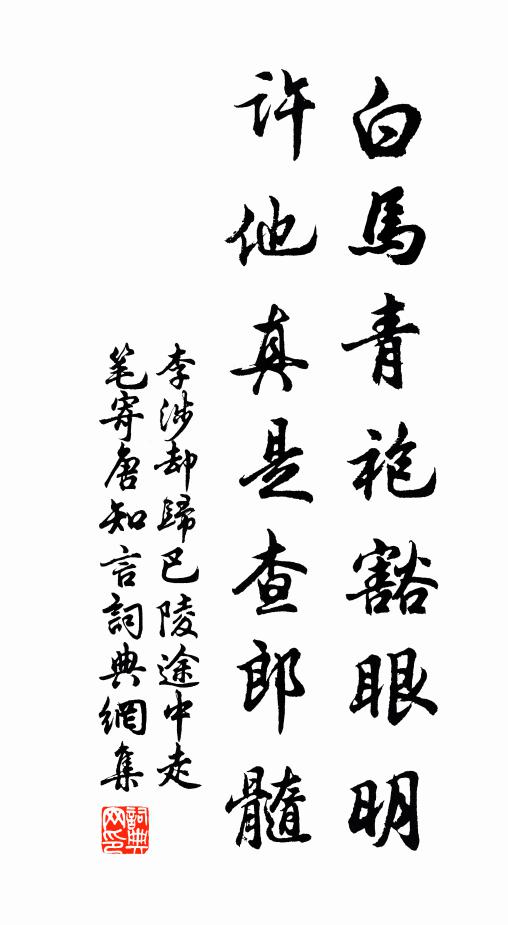 白馬青袍豁眼明
許他真是查郎髓
李涉却歸巴陵途中走
笔寄唐知言詞典網集
詞典
网印